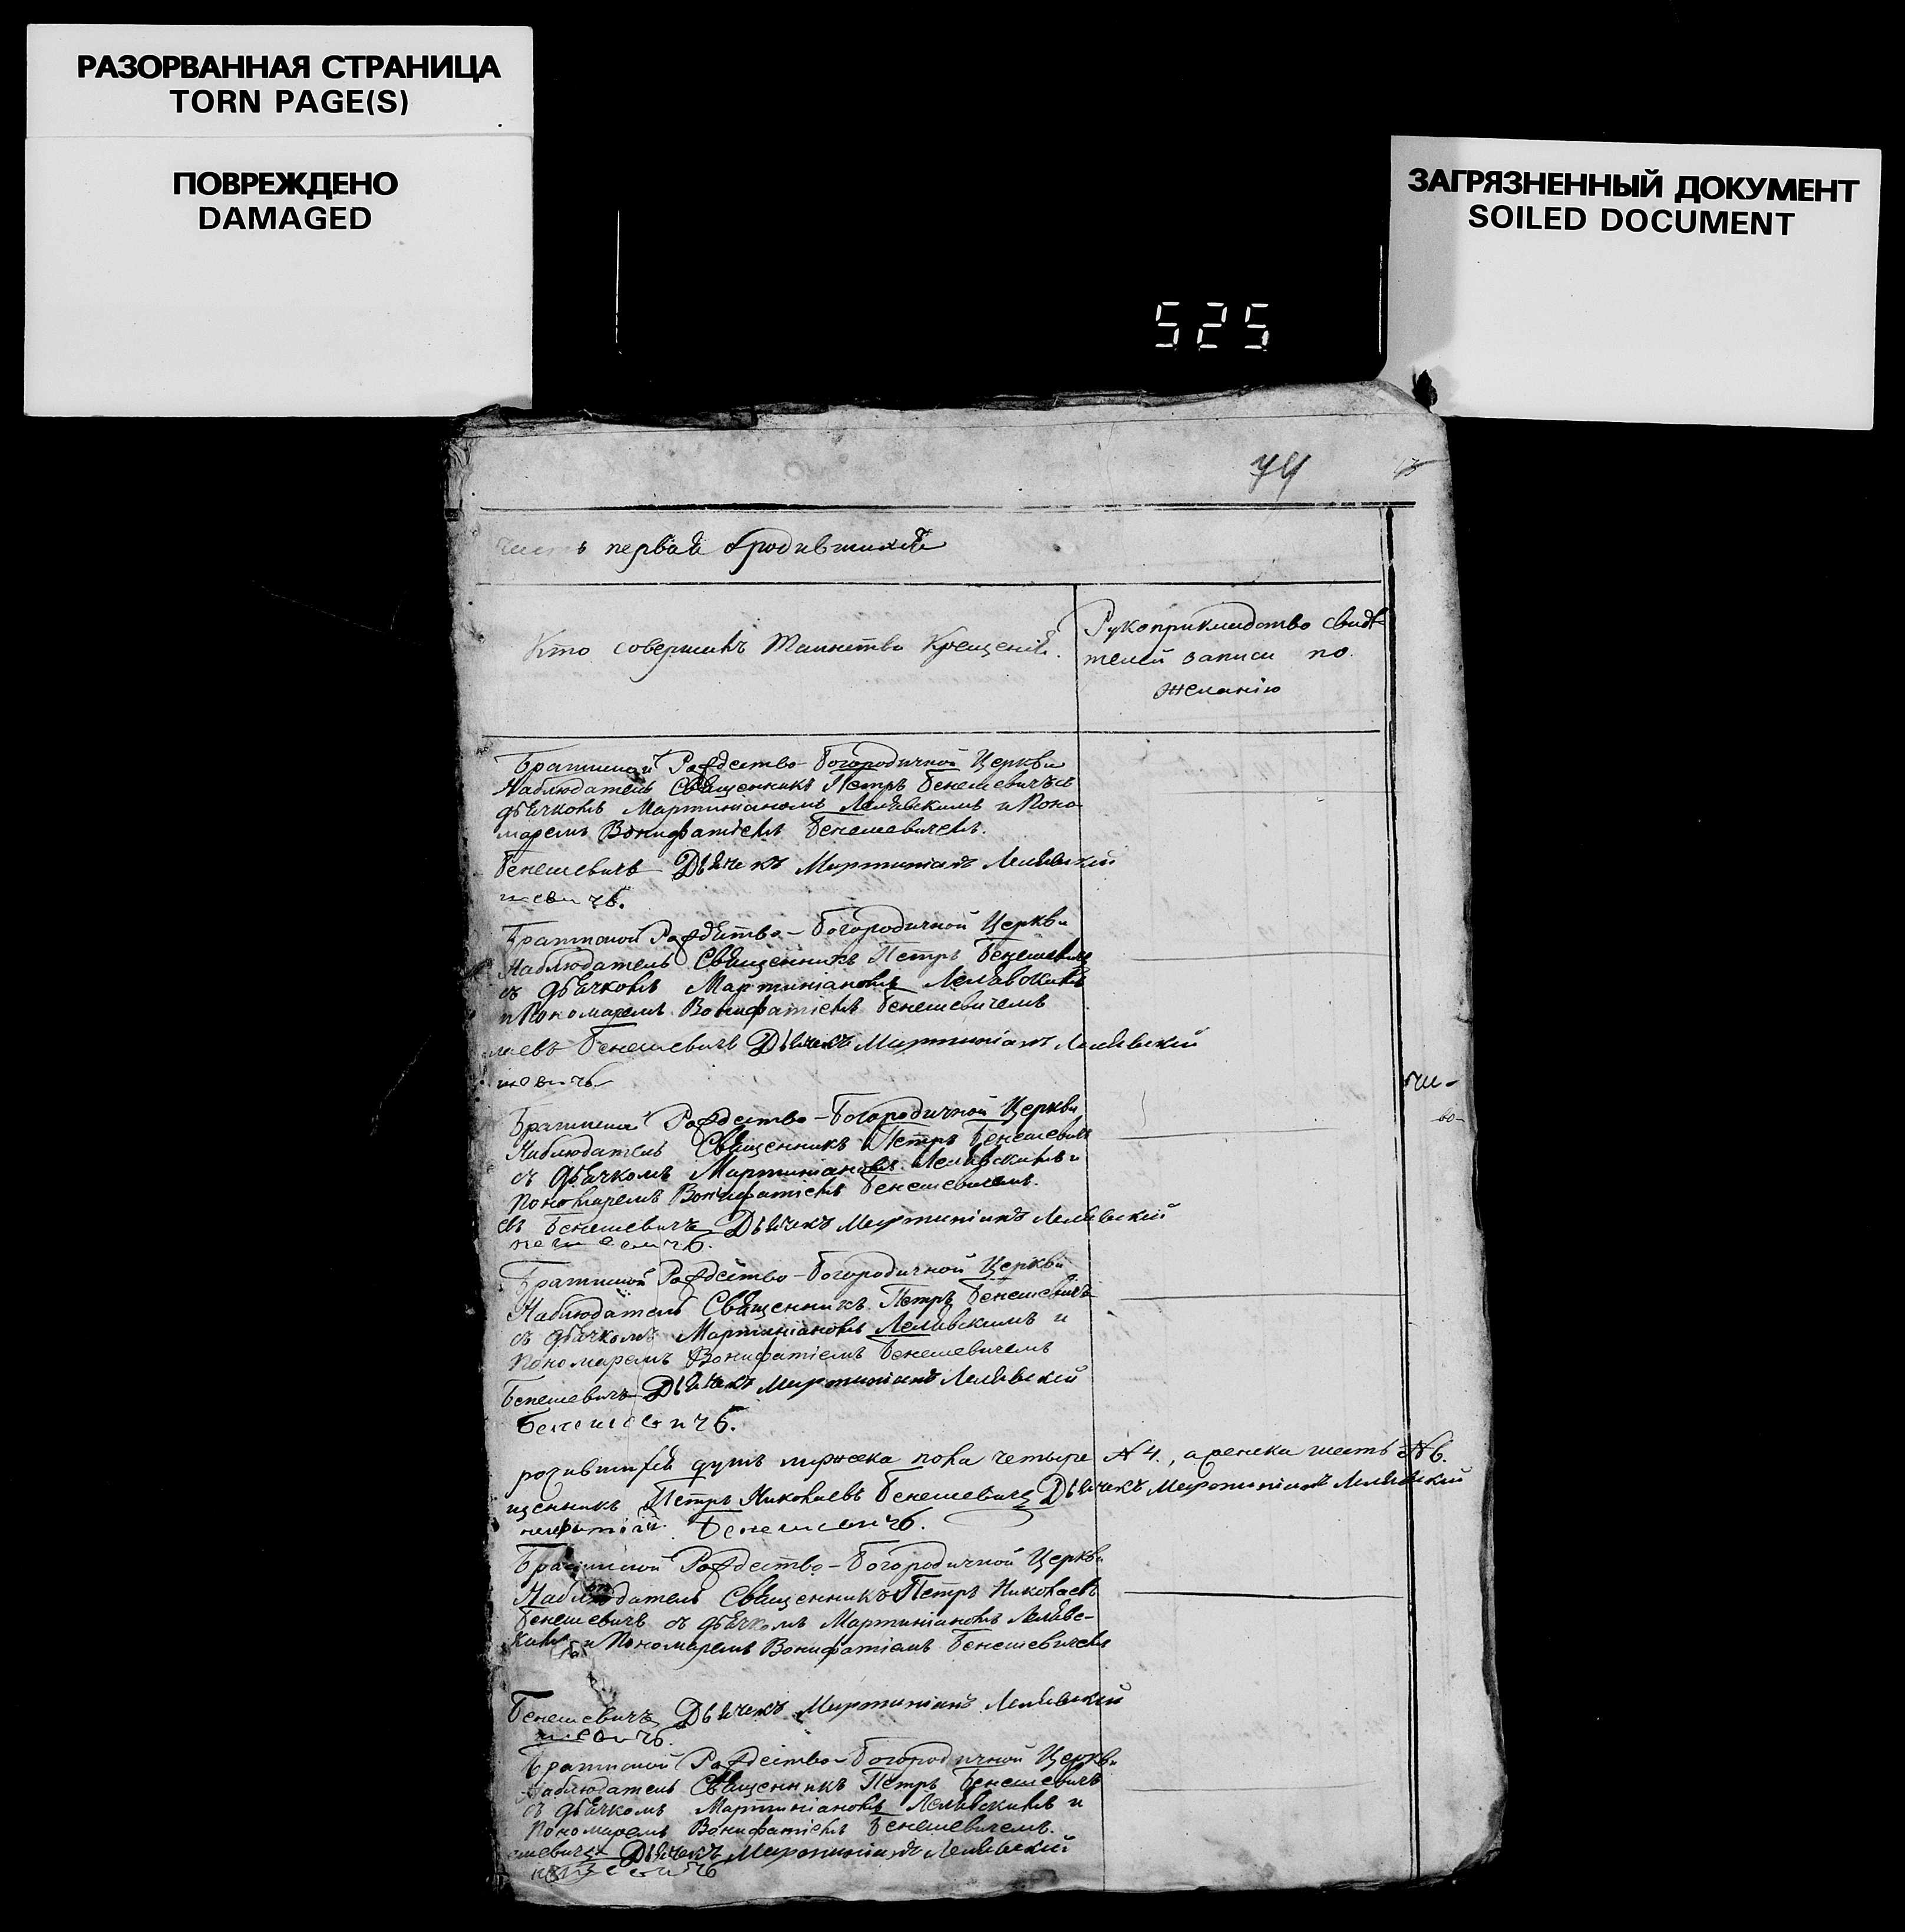 РАЗОРВАННАЯ СТРАНИЦА
TORN PAGE(S)
ПОВРЕЖДЕНО
DAMAGED
ЗАГРЯЗНЕННЫЙ ДОКУМЕНТ
SOILED DOCUMENT
525
74
часть первая о родившихся
Кто совершалъ Таинство Крещенія.
Рукоприкладство свидѣ-
телей записи по
желанію
Рождество-Богородичной Церкви
Наблюдатель Священникъ Петръ Бенешевичъ съ
дьячкомъ Мартиніаномъ Лелявскимъ и Поно
маремъ Вонифатіемъ Бенешевичемъ.
Бенешевичъ Дьячекъ Мартиніанъ Лелявский
шевичъ.
Рождество-Богородичной Церкви
Наблюдатель Священникъ Петръ Бенешевичъ
съ дьячкомъ Мартиніаномъ Лелявскимъ
и Пономаремъ Вонифатіемъ Бенешевичемъ
лаевъ Бенешевичъ Дьячекъ Мартиніанъ Лелявский
шевичъ
Рождество-Богородичной Церкви
Наблюдатель Священникъ Петръ Бенешевичъ
съ дьячкомъ Мартиніаномъ Лелявскимъ и
Пономаремъ Вонифатіемъ Бенешевичемъ.
евъ Бенешевичъ Дьячекъ Мартиніанъ Лелявский
нешевичъ.
Рождество-Богородичной Церкви
Наблюдатель Священникъ Петръ Бенешевичъ
съ дьячкомъ Мартиніаномъ Лелявскимъ и
Пономаремъ Вонифатіемъ Бенешевичемъ
Бенешевичъ Дьячекъ Мартиніанъ Лелявский
Бенешевичъ.
душъ мужска пола четыре №4., а женска шесть №6.
щенникъ Петръ Николаевъ Бенешевичъ Дьячекъ Мартиніанъ Лелявский
нифатій Бенешевичъ.
Рождество-Богородичной Церкви
Наблюдатель Священникъ Петръ Николаевъ
Бенешевичъ съ дьячкомъ Мартиніаномъ Лелявс-
кимъ и Пономаремъ Вонифатіемъ Бенешевичемъ
Бенешевичъ Дьячекъ Мартиніанъ Лелявский
шевичъ.
Рождество-Богородичной Церкви
Наблюдатель Священникъ Петръ Бенешевичъ
съ дьячкомъ Мартиніаномъ Лелявскимъ и
Пономаремъ Вонифатіемъ Бенешевичемъ.
ешевичъ Дьячекъ Мартиніанъ Лелявский
нешевичъ